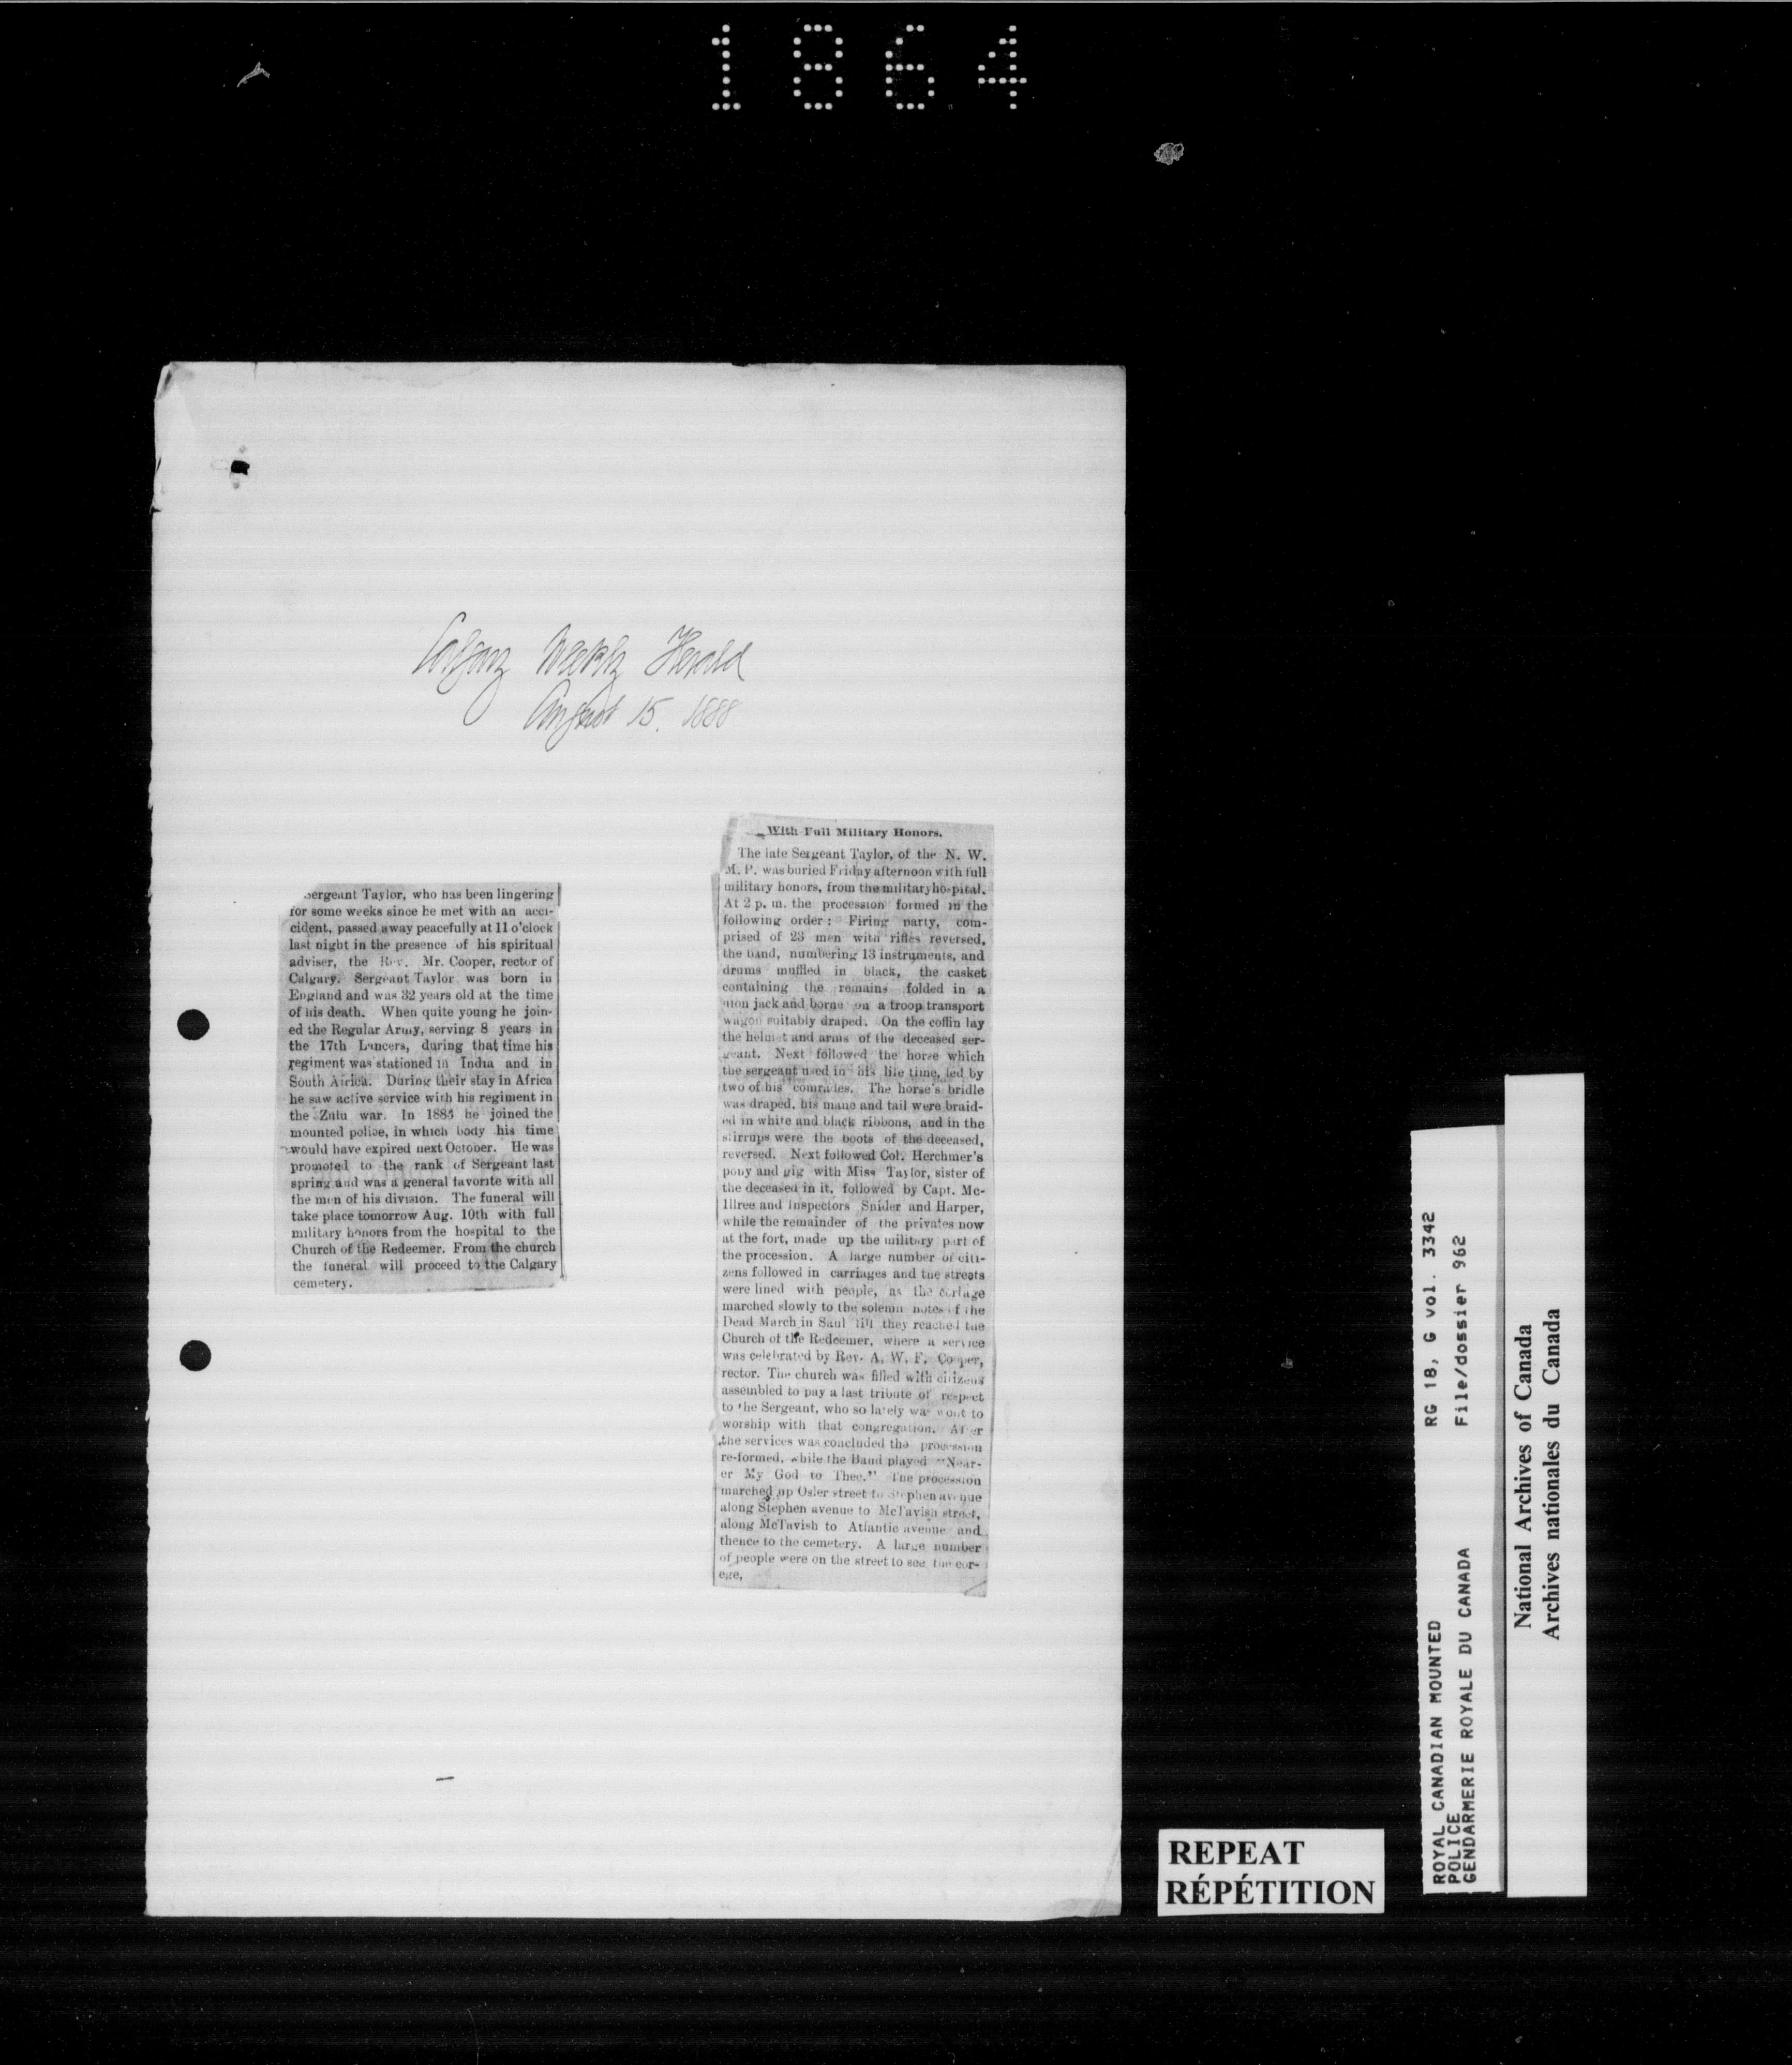 1864
Calgary Weekly Herald
August 15, 1888
Sergeant Taylor, who has been lingering
for some weeks since he met with an acci-
cident, passed away peacefully at 11 o'clock
last night in the presence of his spiritual
adviser, the Rev. Mr. Cooper, rector of
Calgary. Sergeant Taylor was born in
England and was 32 years old at the time
of his death. When quite young he join-
ed the Regular Army, serving 8 years in
the 17th Lancers, during that time his
regiment was stationed in India and in
South Africa. During their stay in Africa
he saw active service with his regiment in
the Zulu war. In 1883 he joined the
mounted police, in which body his time
would have expired next October. He was
promoted to the rank of Sergeant last
spring and was a general favorite with all
the men of his division. The funeral will
take place tomorrow Aug. 10th with full
military honors from the hospital to the
Church of the Redeemer. From the church
the funeral will proceed to the Calgary
cemetery.
With Full Military Honors.
The late Sergeant Taylor, of the N. W.
M. P. was buried Friday afternoon with full
military honors, from the military hospital.
At 2 p. m. the procession formed in the
following order: Firing party, com-
prised of 23 men with rifles reversed,
the band, numbering 13 instruments, and
drums muffled in black, the casket
containing the remains folded in a
union jack and borne on a troop transport
wagon suitably draped. On the coffin lay
the helmet and arms of the deceased ser-
geant. Next followed the horse which
the sergeant used in his life time, led by
two of his comrades. The horse's bridle
was draped, his mane and tail were braid-
ed in white and black ribbons, and in the
stirrups were the boots of the deceased,
reversed. Next followed Col. Herchmer's
pony and gig with Miss Taylor, sister of
the deceased in it, followed by Capt. Mc-
Illree and Inspectors Snider and Harper,
while the remainder of the privates now
at the fort, made up the military part of
the procession. A large number of citi-
zens followed in carriages and the streets
were lined with people, as the cortage
marched slowly to the solemn notes of the
Dead March in Saul till they reached the
Church of the Redeemer, where a service
was celebrated by Rev. A. W. F. Cooper,
rector. The church was filled with citizens
assembled to pay a last tribute of respect
to the Sergeant, who so lately was wont to
worship with that congregation. After
the services was concluded the procession
re-formed, while the Band played "Near-
er My God to Thee." The procession
marched up Osler street to Stephen avenue
along Stephen avenue to McTavish street,
along McTavish to Atlantic avenue and
thence to the cemetery. A large number
of people were on the street to see the cor-
ege,
REPEAT
RÉPÉTITION
ROYAL CANADIAN MOUNTED RG 18, G vol. 3342
POLICE
GENDARMERIE ROYALE DU CANADA File/dossier 962
National Archives of Canada
Archives nationales du Canada